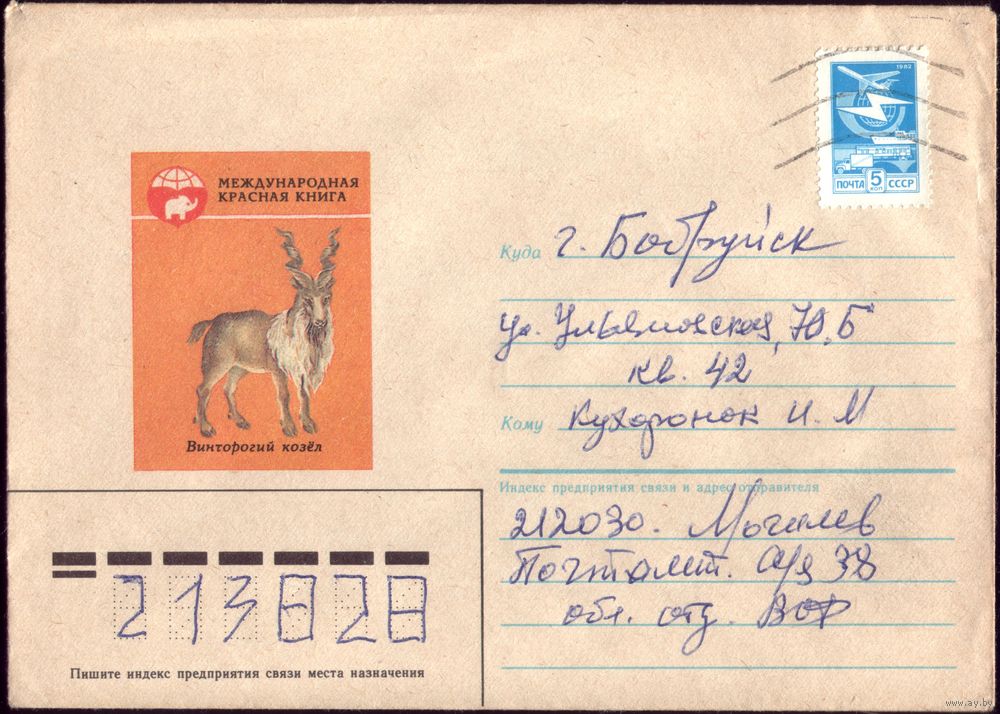 1982
ПОЧТА 5 КОП СССР
МЕЖДУНАРОДНАЯ
КРАСНАЯ КНИГА
Винторогий козёл
Куда г. Бобруйск
ул. Ульяновская, 70, Б
кв. 42
Кому Кухоронок И. М
Индекс предприятия связи и адрес отправителя
212030. Могилев
Почтамт. а/я 38
обл. отд. ВОФ
213828
Пишите индекс предприятия связи места назначения
www.ay.by